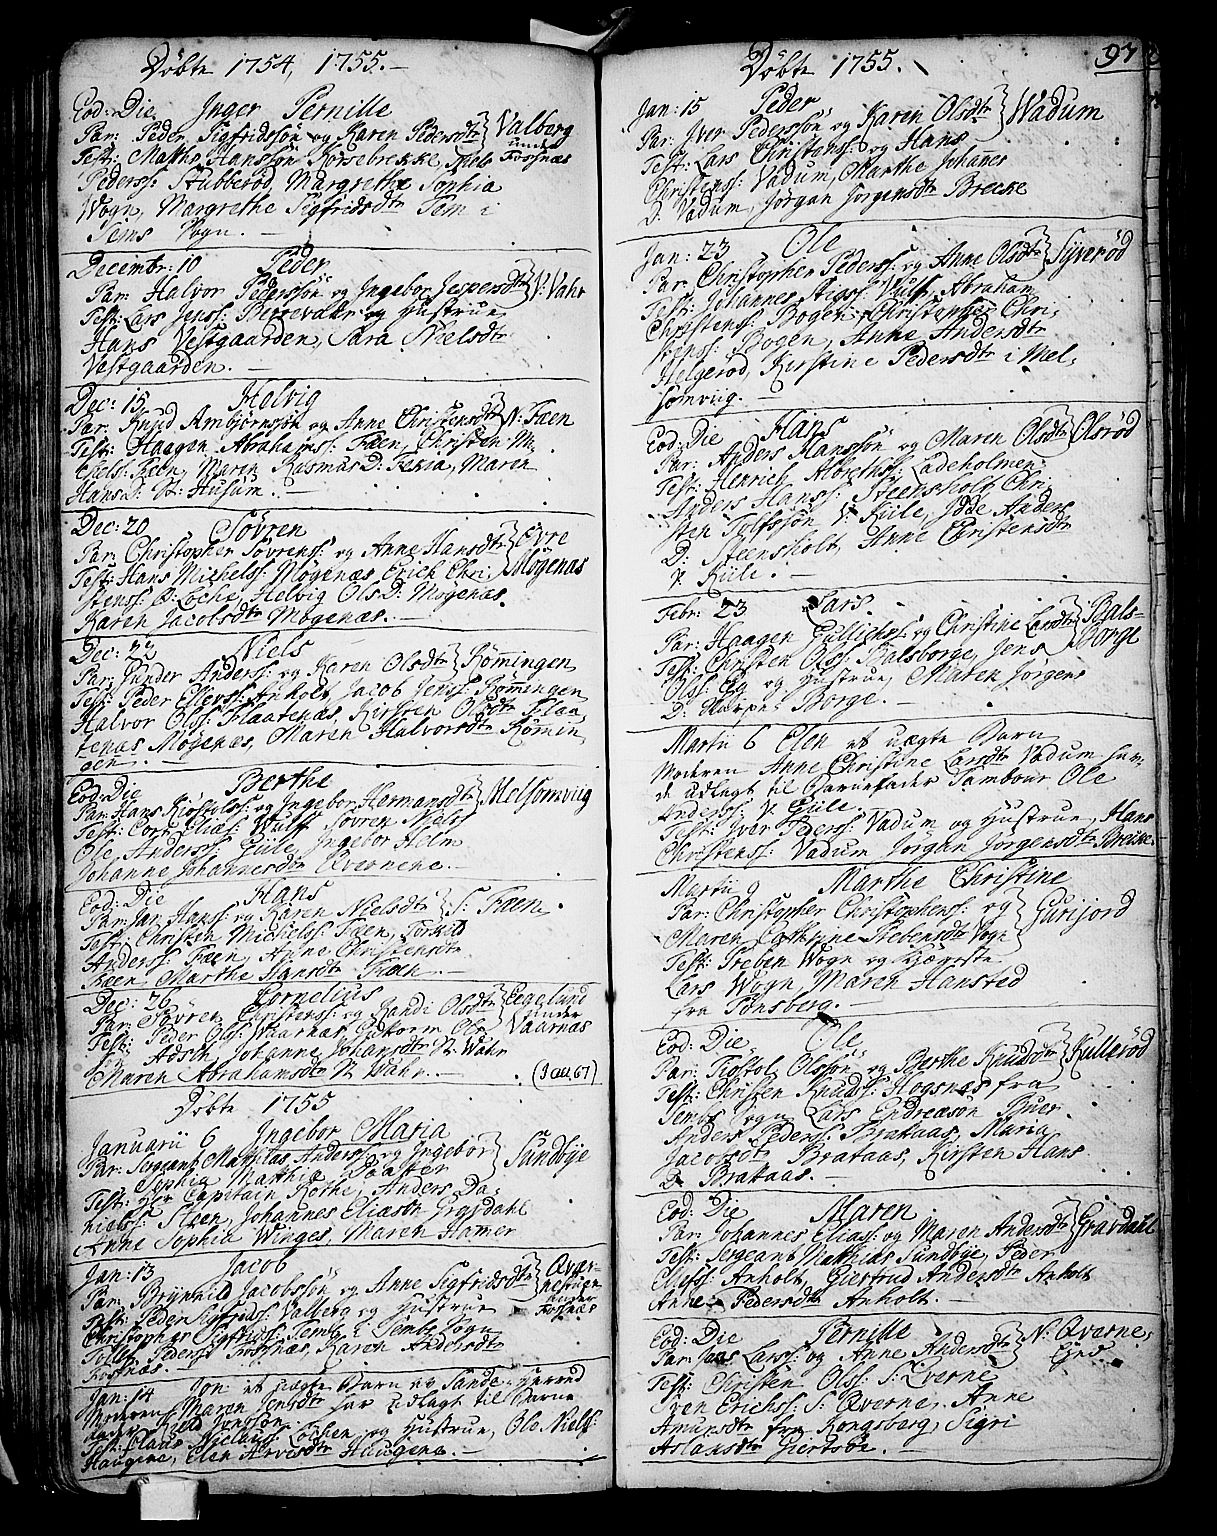 Döbte 1754, 1755.
Eod: Die Inger Pernille
Par: Peder Sigfridssön og Karen Pedersdtr Valberg
Test: Mathis Hanssön Korsebrekke, Niels under Fossnæs
Pederss: Stubberöd, Margrethe Sophia
Wogn, Margrethe Sigfridsdtr Sem i
Sems Sogn.
Decembr: 10 Peder
Par: Halvor Pederssön og Ingebor Jespersdtr V: Vahr
Test: Lars Jenss: Berrevahr og Hustrue
Hans Vestgaarden, Sara Nielsdtr
Vestgaarden.
Dec: 15 Helvig
Par: Knud Ambjörnssön og Anne Christensdtr N: Faen
Test: Haagen Abrahamss: Faen, Christen Mi
chels: Faen, Maren Rasmus D: Fenia, Maren
Hans D: N: Husum.
Dec: 20 Sövren
Par: Christopher Sövrens: og Anne Hansdtr Övre
Test: Hans Michelss: Mögenæs Erich Chri: Mögenæs
stenss: Ö: Loche, Helvig Ols D: Mögenæs
Karen Jacobsdtr Mögenæs.
Dec: 22 Niels
Par: Gunder Anderss: og Karen Olsdtr Römmingen
Test: Peder Ellevss: Anholt, Jacob Jenss: Römingen
Halvor Olss: Flaatenæs, Kirsten Olsdtr Flaa,
tenæs Mögenæs, Maren Halvorsdtr Römin,
gen.
Eod: Die Berthe
Par: Hans Kiöstulss: og Ingebor Hermansdtr Melsomviig
Test: Cort Eliæs: Wulff Sövren Niels
Ole Anderss: Giile, Ingebor Helm
Johanne Johannesdtr Qvernene.
Eod: Die Hans
Par: Jan Hanss: og Karen Nielsdtr S: Faen
Test: Christen Michelss: Faen, Torkild
Anderss: Faen, Anne Christensdtr
Faen, Marthe Hansdtr Faen.
Dec: 26 Cornelius
Par: Sövren Christenss: og Randi Olsdtr Eegelund
Test: Peder Olss: Vaarnæs, Guttorm Ols under Vaarnæs
Johanne Johansdtr N: Wahr
Maren Abrahamsdtr N: Wahr.
Döbte 1755
Januarii 6 Ingebor Maria
Par: Sergeant Mathias Anderss: og Ingebor Sundbye
Sophia Mathia Paaster
Test: Hr Capitain Rothe, Anders Da,
nielss: Steen, Johannes Eliasön Gravdahl
Anne Sophia Winges, Maren Hamer
Jan: 13 Jacob
Par: Brynnild Jacobssön og Anne Sigfridsdtr Qvær,
Test: Peder Sigfridss: Valberg og Hustrue nestuen
Christopher Sigfridss: Semb i Sembs Sogn under
Tellef Pederss: Fossnæs, Karen Andersdtr Fossnæs
Fossnæs.
Jan: 14 Jon et uægte Barn
Moderen Maren Jensdtr har udlagt til Barne
fader Jenssön
Test: Claus Nielss: Lochen og Hustrue, Ole Niels:
Haugene, Elen Arvesdtr Haugene.
Döbte 1755.
97
Jan: 15 Peder
Par: Iver Pederssön og Karen Olsdtr Wadum
Test: Lars Christenss: og Hans
Christenss: Vadum, Marthe Johannes
D: Vadum, Jörgen Jörgensdtr Brecke
Jan: 23 Ole
Par: Christopher Pederss: og Anne Olsdtr Syveröd
Test: Johannes Wulf, Abraham
Christenss: Bogen, Christenss: Chri,
stenss: Bogen, Anne Andersdtr
Helgeröd, Kirstine Pedersdtr i Mel,
somviig.
Eod: Die Hans
Par: Anders Hanssön og Maren Olsdtr Olsröd
Test: Henrich Albretss: Ladeholmen
Anders Hanss: Steensholt Chri,
sten Tolfssön V: Kiile, Idde Anders
D: Steensholt, Anne Christensdtr
V. Kiile.
Febr: 23 Lars
Par: Haagen Gullichss: og Christine Larsdtr Bals-
Test: Christen Olss: Balsborge, Jens borge
Olss: Eg og Hustrue, Maren Jörgens
D: Borge.
Martii 6 Elen et uægte Barn
Moderen Anne Christine Larsdtr Vadum har,
de udlagt til Barnefader Tambour Ole
Anderss: V. Giile.
Test: Iver Pederss: Vadum og Hustrue, Hans
Christenss: Vadum Jörgen Jörgensdtr Breike.
Martii 9 Marthe Christine
Par: Christopher Christophenss: og Gurijord
Maren Cathrine Prebensdtr Vogn
Test: Preben Wogn og Kjæreste
Lars Wogn Maren Hansted
fra Tönsberg.
Eod: Die Ole
Par: Tiöstol Olssön og Berthe Knudsdtr Kulleröd
Test: Christen Knudss: Hogsnæs fra
Sembs Sogn Lars Endreasön Buer
Anders Pederss: Brataas, Maria
Jacobsdtr Brataas, Kirsten Hans
D: Brataas.
Eod: Die Maren
Par: Johannes Eliass: og Maren Andersdtr Gravdahl
Test: Sergeant Mathias Sundbye, Peder
Ellefss: Anholt, Giertrud Andersdtr Anholt
Anne Pedersdtr Anholt.
Eod: Die Pernille
Par: Jens Larss: og Anne Andersdtr N: Qverne,
Test: Christen Olss: S: Qverne Ejes
Even Erichss: S: Qverne, Anne
Amunsdtr fra Kongsberg, Sigri
Aslansdtr Giertsöe.